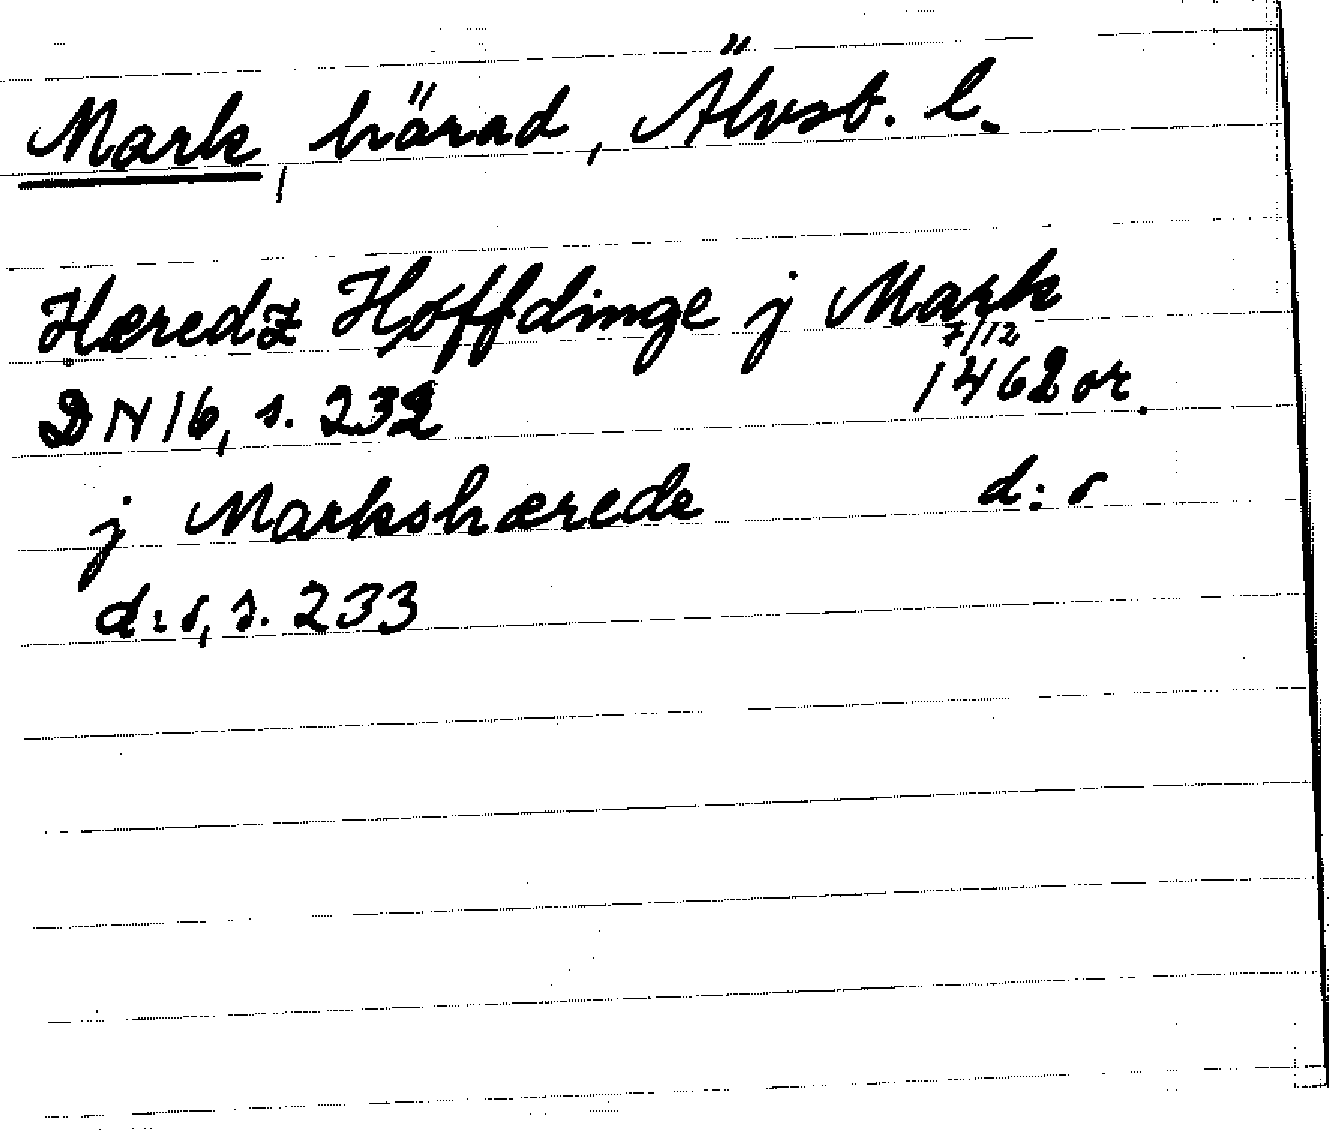 Mark, härad, Älvsb. l.
Hæredz Höffdinge j Mark
7/12
DN 16, s. 232 1462 or.
j Markshærede d:o
d:o, s. 233